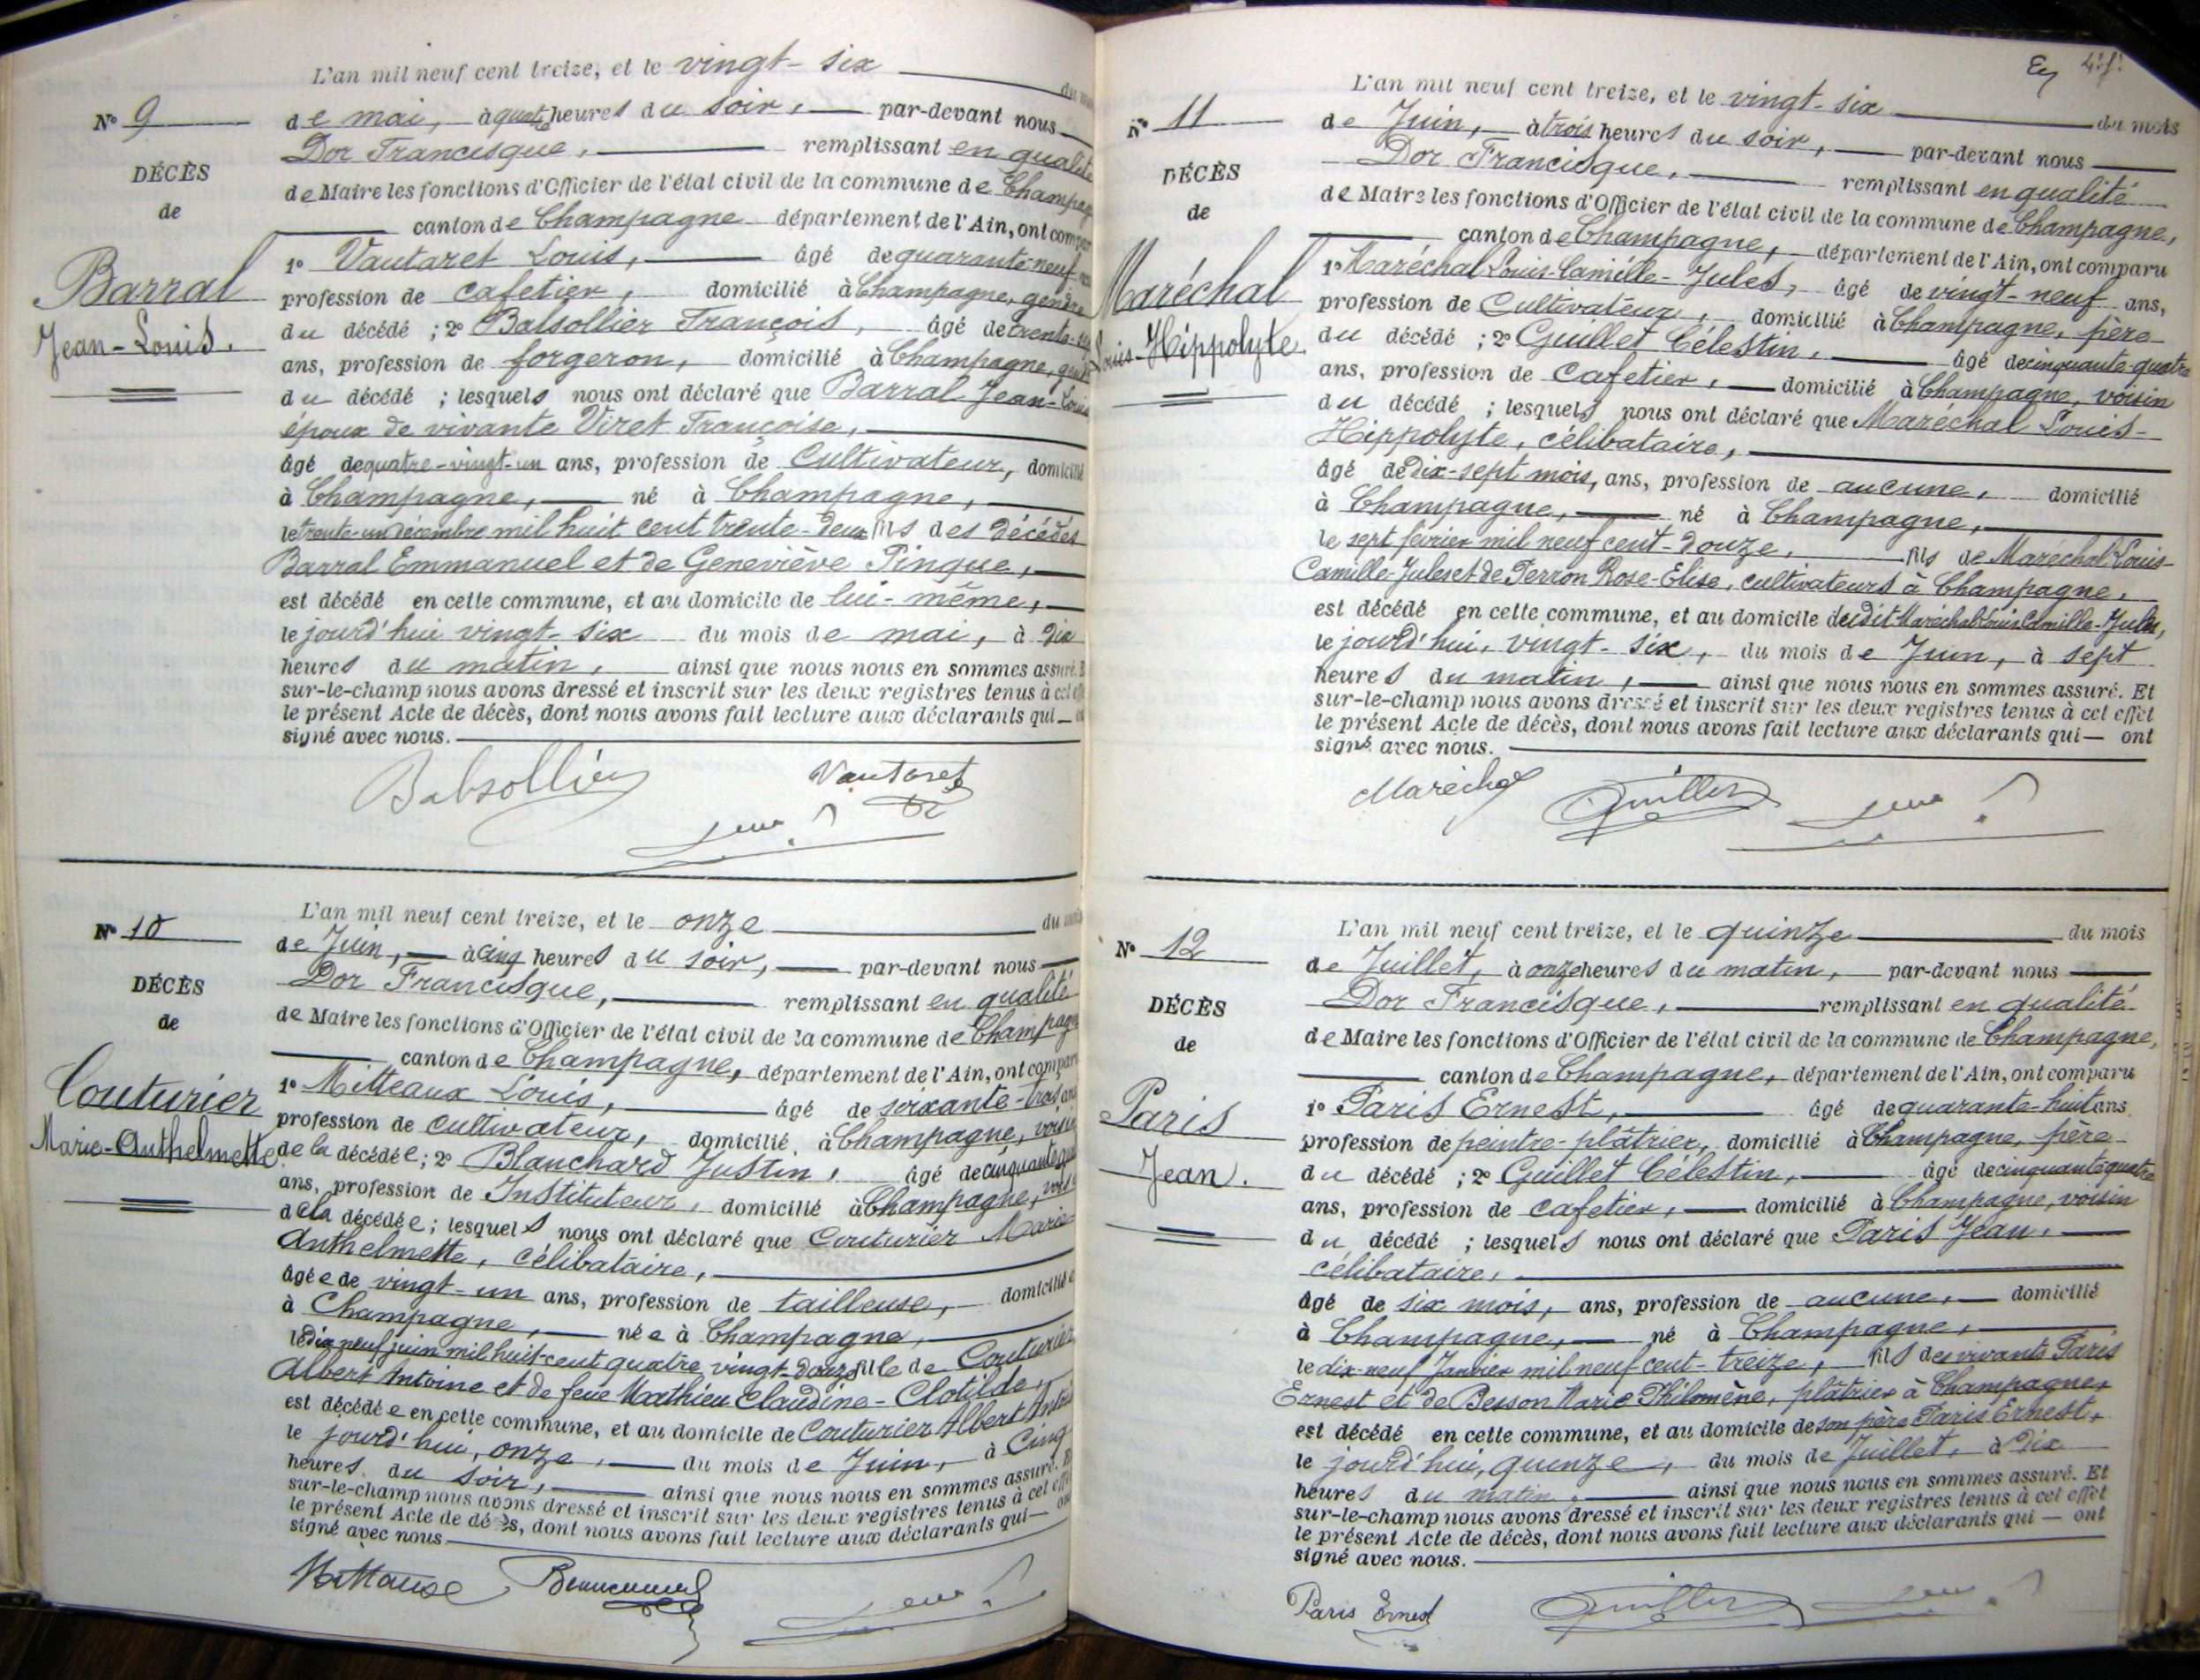 L'an mil neuf cent treize, et le vingt-six
N° 9
de mai, à quatre heures du soir, par-devant nous
Dor Francisque, remplissant en qualité
DÉCÈS
de Maire les fonctions d'Officier de l'état civil de la commune de Champag
de
canton de Champagne département de l'Ain, ont compar
1° Vautaret Louis, âgé de quarante-neuf ans
Barral
profession de cafetier, domicilié à Champagne, gendre
Jean-Louis.
du décédé ; 2° Balsollier François, âgé de trente-
ans, profession de forgeron, domicilié à Champagne,
du décédé ; lesquels nous ont déclaré que Barral Jean-Louis
époux de vivante Viret Françoise,
âgé de quatre-vingt-un ans, profession de Cultivateur, domicilié
à Champagne, né à Champagne,
le trente-un décembre mil huit cent trente-deux fils des décédés
Barral Emmanuel et de Geneviève Pingue,
est décédé en cette commune, et au domicile de lui-même,
le jourd'hui vingt-six du mois de mai, à dix
heures du matin, ainsi que nous nous en sommes assuré. E
sur-le-champ nous avons dressé et inscrit sur les deux registres tenus à cet eff
le présent Acte de décès, dont nous avons fait lecture aux déclarants qui
signé avec nous.
Balsollier Vautaret
L'an mil neuf cent treize, et le onze du mois
N° 10
de Juin, à cinq heures du soir, par-devant nous
Dor Francisque, remplissant en qualité
DÉCÈS
de Maire les fonctions d'Officier de l'état civil de la commune de Champagn
de
canton de Champagne, département de l'Ain, ont comparu
1° Mitteaux Louis, âgé de soixante-trois ans
Couturier
profession de cultivateur, domicilié à Champagne, voisin
Marie-Anthelmette
de la décédée ; 2° Blanchard Justin, âgé de cinquante
ans, profession de Instituteur, domicilié à Champagne, vois
de la décédée ; lesquels nous ont déclaré que Couturier Marie-
Anthelmette, célibataire,
âgée de vingt-un ans, profession de tailleuse, domiciliée
à Champagne, née à Champagne,
le dix neuf juin mil huit-cent quatre vingt-douze fille de Couturier
Albert Antoine et de feue Mathieu Claudine-Clotilde,
est décédée en cette commune, et au domicile de Couturier Albert Antoi
le jourd'hui, onze, du mois de Juin, à Cinq
heures du soir, ainsi que nous nous en sommes assuré. E
sur-le-champ nous avons dressé et inscrit sur les deux registres tenus à cet effet
le présent Acte de décès, dont nous avons fait lecture aux déclarants qui
signé avec nous
L'an mil neuf cent treize, et le vingt-six du mois
N° 11
de Juin, à trois heures du soir, par-devant nous
Dor Francisque, remplissant en qualité
DÉCÈS
de Maire les fonctions d'Officier de l'état civil de la commune de Champagne,
de
canton de Champagne, département de l'Ain, ont comparu
1° Maréchal Louis-Camille-Jules, âgé de vingt-neuf ans,
Maréchal
profession de Cultivateur, domicilié à Champagne, père
Louis-Hippolyte.
du décédé ; 2° Guillet Célestin, âgé de cinquante-quatre
ans, profession de Cafetier, domicilié à Champagne, voisin
du décédé ; lesquels nous ont déclaré que Maréchal Louis-
Hippolyte, célibataire,
âgé de dix-sept mois, ans, profession de aucune, domicilié
à Champagne, né à Champagne,
le sept février mil neuf cent-douze, fils de Maréchal Louis-
Camille-Jules et de Perron Rose-Elise, cultivateurs à Champagne,
est décédé en cette commune, et au domicile dudit Maréchal Louis Camille-Jules,
le jourd'hui, vingt-six, du mois de Juin, à sept
heures du matin, ainsi que nous nous en sommes assuré. Et
sur-le-champ nous avons dressé et inscrit sur les deux registres tenus à cet effet
le présent Acte de décès, dont nous avons fait lecture aux déclarants qui ont
signé avec nous.
Maréchal Guillet
L'an mil neuf cent treize, et le quinze du mois
N° 12
de Juillet, à onze heures du matin, par-devant nous
Dor Francisque, remplissant en qualité
DÉCÈS
de Maire les fonctions d'Officier de l'état civil de la commune de Champagne,
de
canton de Champagne, département de l'Ain, ont comparu
1° Paris Ernest, âgé de quarante-huit ans
Paris
profession de peintre-plâtrier, domicilié à Champagne, père
Jean.
du décédé ; 2° Guillet Célestin, âgé de cinquante quatre
ans, profession de cafetier, domicilié à Champagne, voisin
du décédé ; lesquels nous ont déclaré que Paris Jean,
célibataire,
âgé de six mois, ans, profession de aucune, domicilié
à Champagne, né à Champagne,
le dix-neuf Janvier mil neuf cent-treize, fils des vivants Paris
Ernest et de Besson Marie Philomène, plâtrier à Champagne,
est décédé en cette commune, et au domicile de son père Paris Ernest,
le jourd'hui, quinze, du mois de Juillet, à dix
heures du matin, ainsi que nous nous en sommes assuré. Et
sur-le-champ nous avons dressé et inscrit sur les deux registres tenus à cet effet
le présent Acte de décès, dont nous avons fait lecture aux déclarants qui ont
signé avec nous.
Paris Ernest Guillet